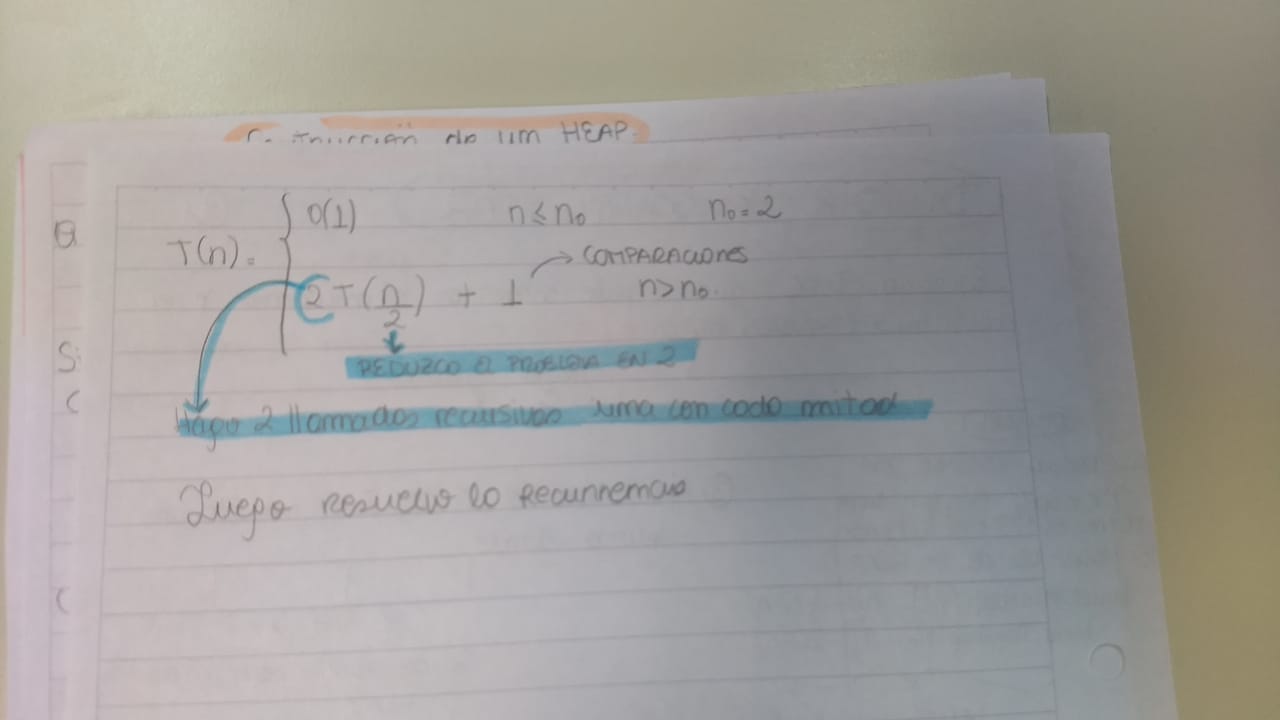 trucción de un HEAP.
T(n) = { O(1) n ≤ n₀ n₀ = 2
→ COMPARACIONES
2T(n/2) + 1 n > n₀.
REDUZCO EL PROBLEMA EN 2
Hago 2 llamados recursivos una con cada mitad
Luego resuelvo la Recurrencia